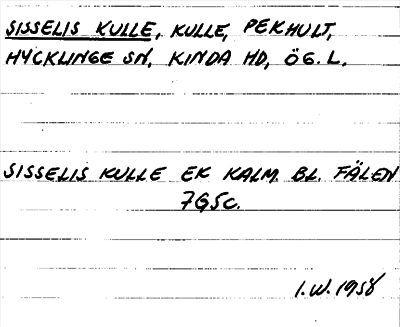 SISSELIS KULLE, KULLE, PEKHULT,
HYCKLINGE SN, KINDA HD, ÖG. L.
SISSELIS KULLE EK KALM. BL. FÄLEN
7G5c.
I.W. 1958